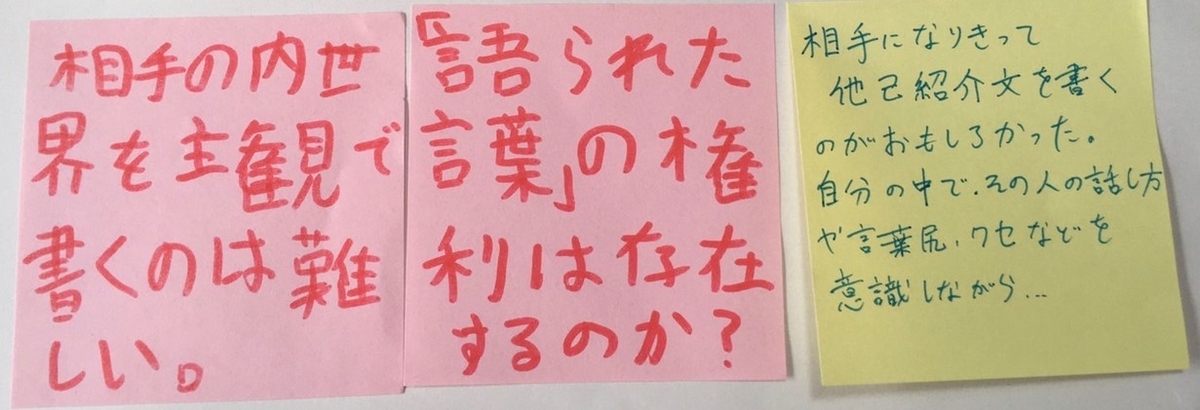 相手の内世
界を主観で
書くのは難
しい。
「語られた
言葉」の権
利は存在
するのか？
相手になりきって
他己紹介文を書く
のがおもしろかった。
自分の中で、その人の話し方
や言葉尻、クセなどを
意識しながら…